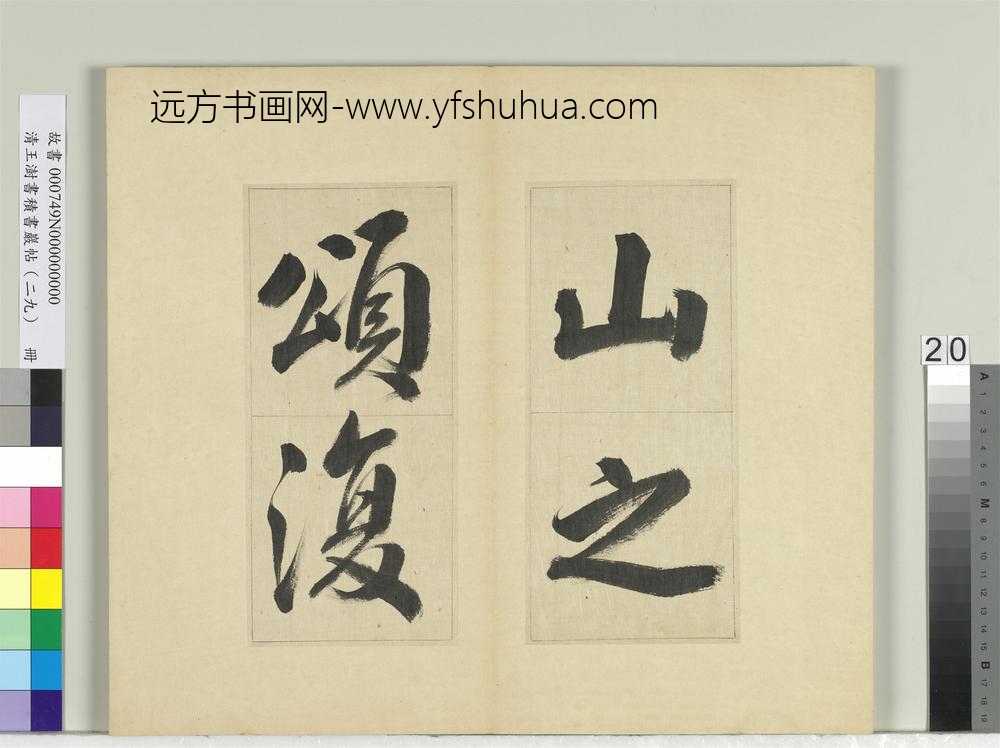 远方书画网-www.yfshuhua.com
山之
頌復
故書 000749N000000000
清王澍書積書巖帖（二九） 冊
20
A 1 2 3 4 5 6 M 8 9 10 11 12 13 14 15 B 17 18 19